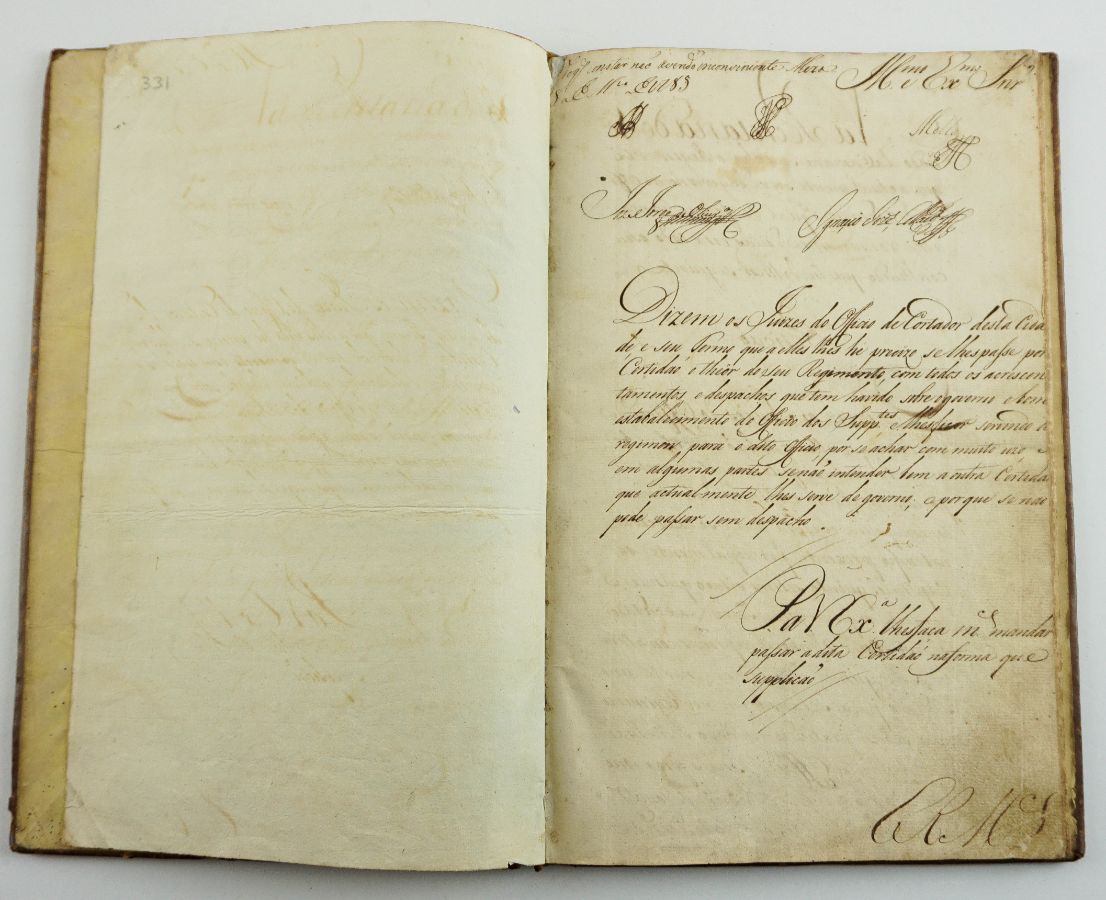 331
não havendo inconveniente
Illmo e Exmo Snr
Dizem os Juizes do Officio de Cortador desta Cida
de, e seu termo que a elles lhes he precizo, se lhes passe por
Certidaõ o thior do seu Regimento, com todos os acrescen
tamentos e despachos que tem havido sobre o governo e bom
estabalecimento do Officio dos Supptes e lhes ficar servindo de
regimen para o dito Officio, por se achar com muito uzo e
em algumas partes se naõ intender bem a outra Certida
que actualmente lhes serve de governo, e porque se naõ
pode passar sem despacho
P. a V Exa lhes faca mce mandar
passar a dita Certidaõ na forma que
supplicaõ
E R Mce